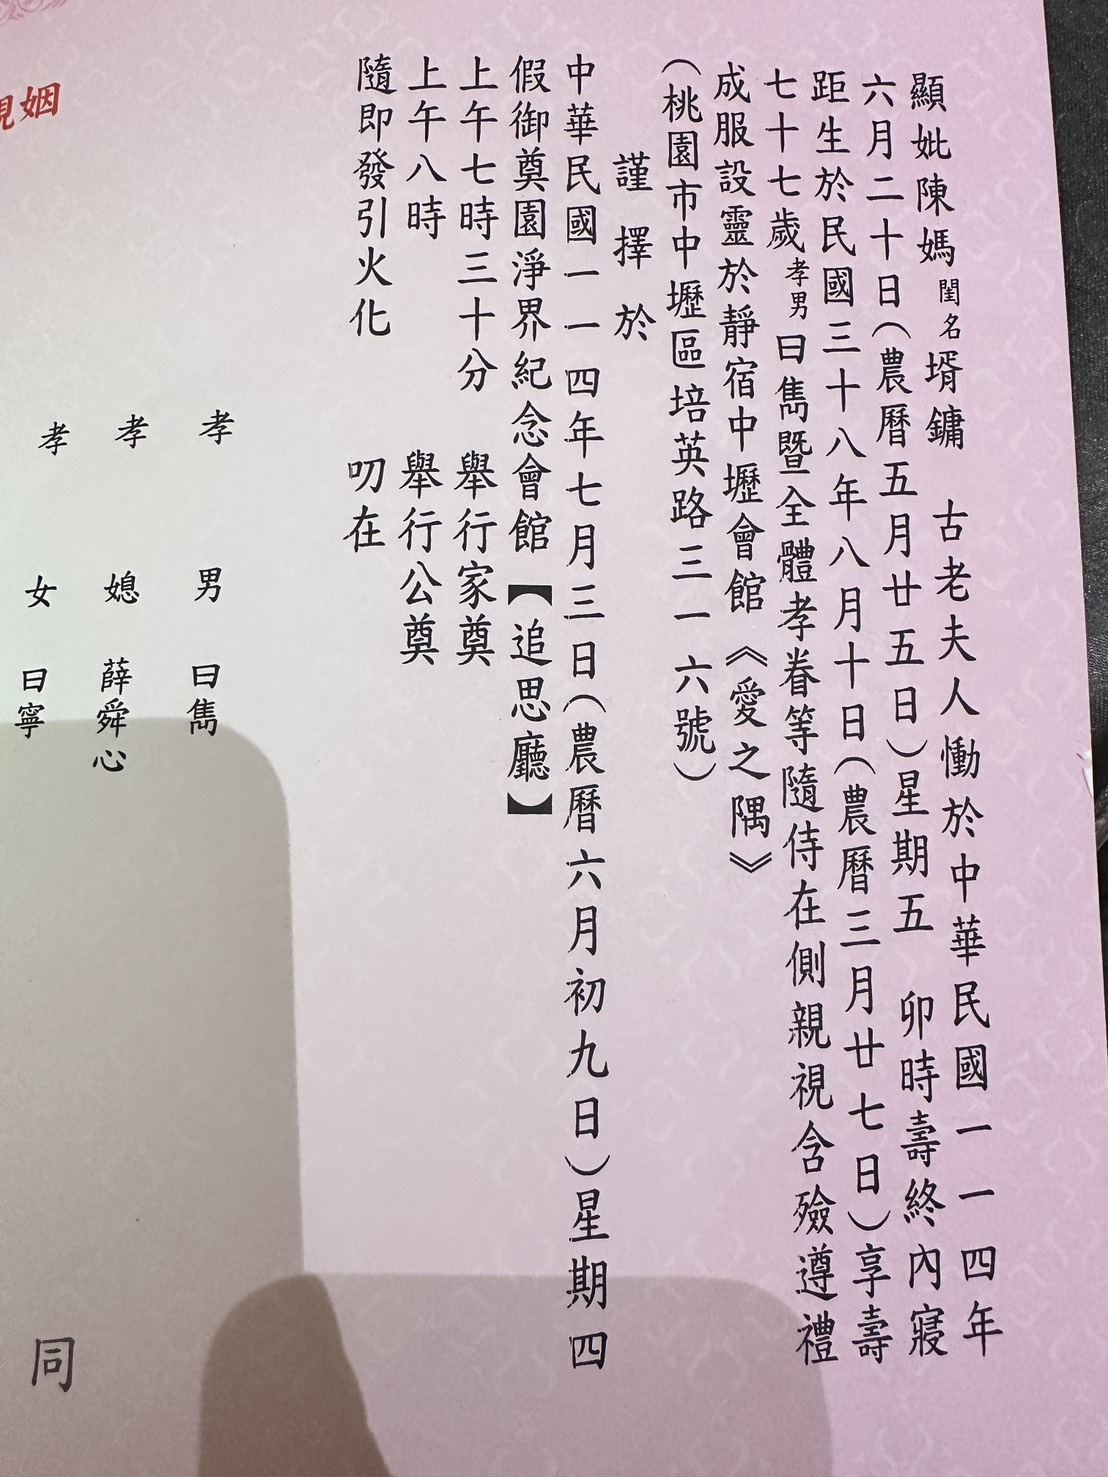 顯妣陳媽閨名壻鏞　古老夫人慟於中華民國一一四年
六月二十日（農曆五月廿五日）星期五　卯時壽終內寢
距生於民國三十八年八月十日（農曆三月廿七日）享壽
七十七歲孝男曰雋暨全體孝眷等隨侍在側親視含殮遵禮
成服設靈於靜宿中壢會館《愛之隅》
（桃園市中壢區培英路三一六號）
謹擇於
中華民國一一四年七月三日（農曆六月初九日）星期四
假御奠園淨界紀念會館【追思廳】
上午七時三十分　舉行家奠
上午八時　舉行公奠
隨即發引火化　叨在
孝　男　曰雋
孝　媳　薛舜心
孝　女　曰寧
姻
同